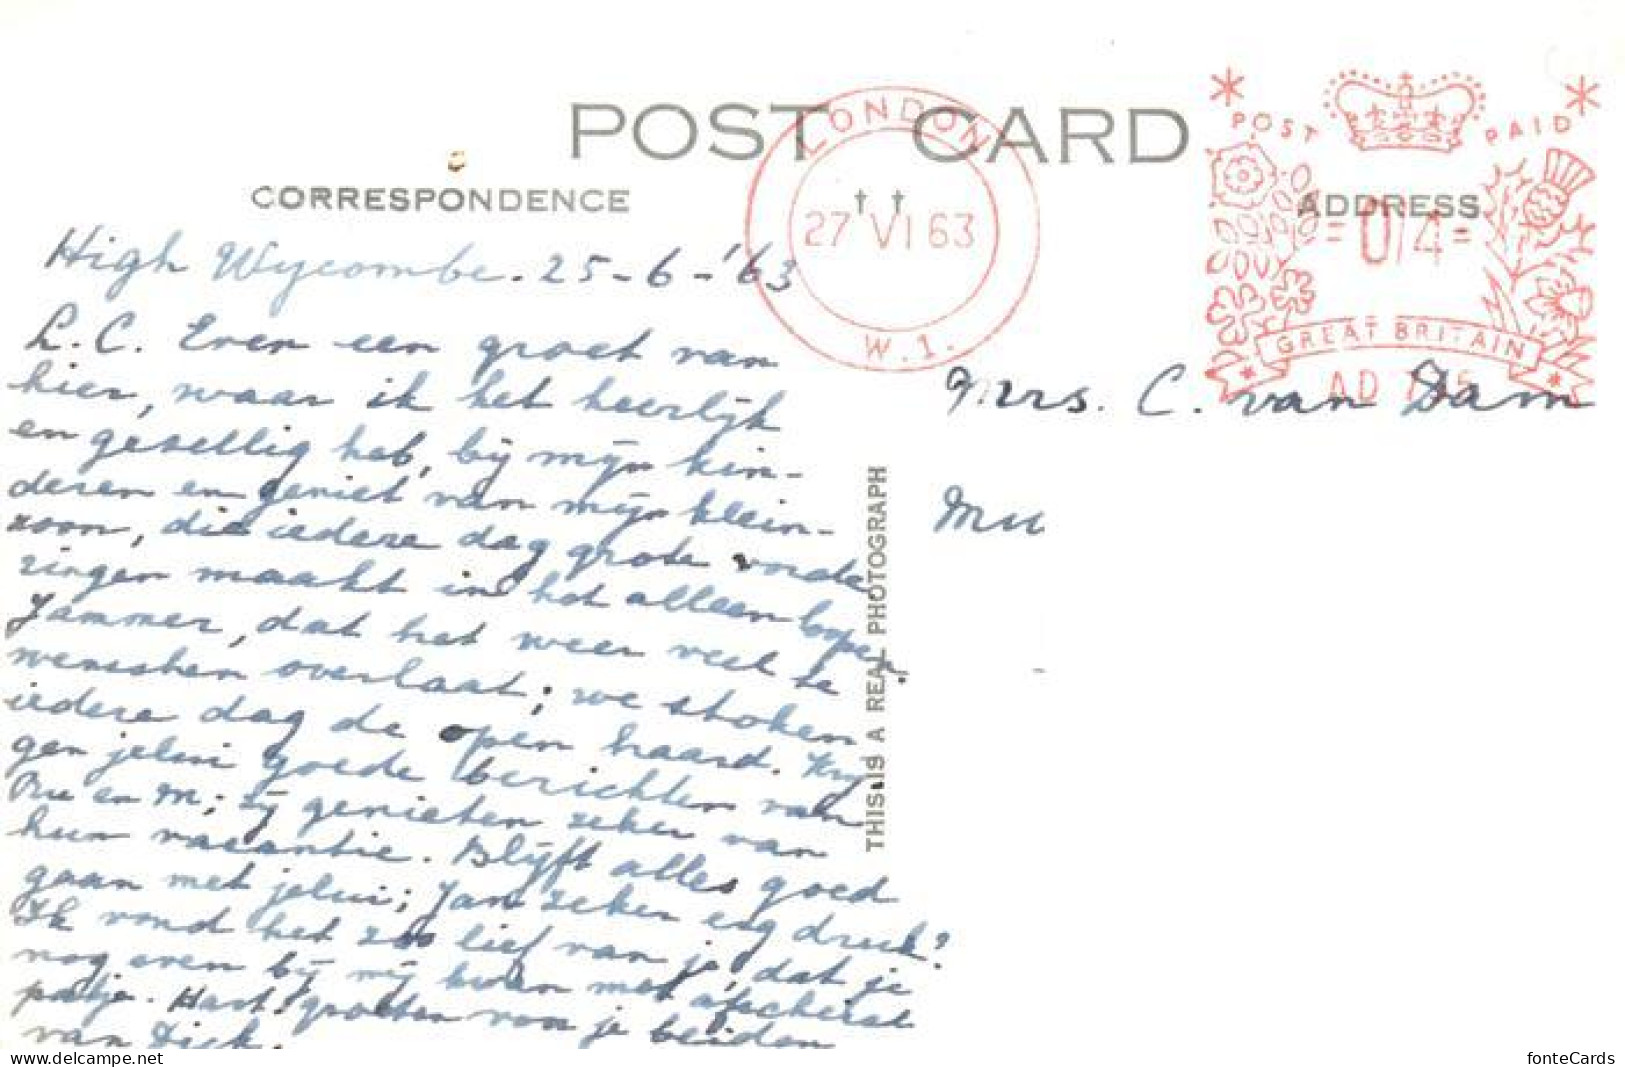 POST CARD
CORRESPONDENCE
ADDRESS
LONDON
27 VI 63
W.1.
POST PAID
=0/4=
GREAT BRITAIN
AD
High Wycombe. 25-6-'63
L.C. Even een groet van
hier, waar ik het heerlijk
en gezellig heb, bij mijn kin-
deren en geniet van mijn klein-
zoon, die iedere dag grote vorde
ringen maakt in het alleen lopen.
Jammer, dat het weer veel te
wenschen overlaat; we stoken
iedere dag de open haard. Kry
gen jelui goede berichten van
Rie en M; zij genieten zeker van
hun vacantie. Blijft alles goed
gaan met jelui; Jan zeker erg druk?
Ik vond het zoo lief van je, dat je
nog even bij mij kwam met
patje. Hart. groeten von je beiden
van Dick.
Mrs. C. van Dam
Mu
THIS IS A REAL PHOTOGRAPH
www.delcampe.net
fonteCards